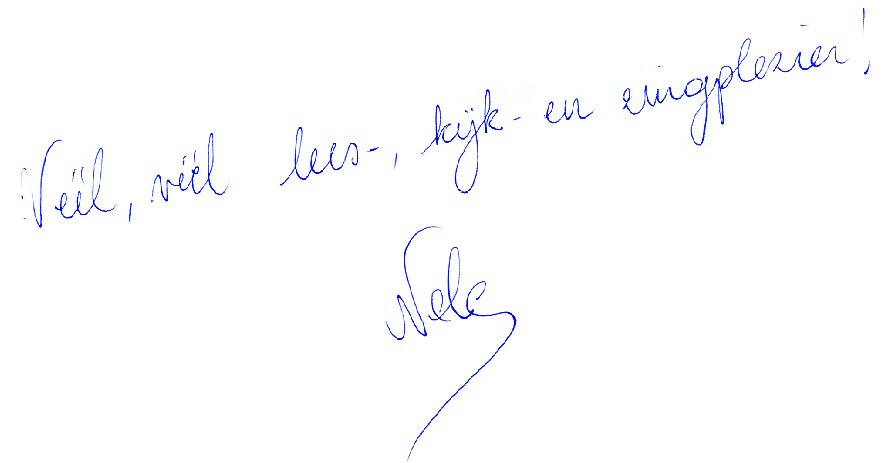 Véél, véél lees-, kijk- en zingplezier!
Nele